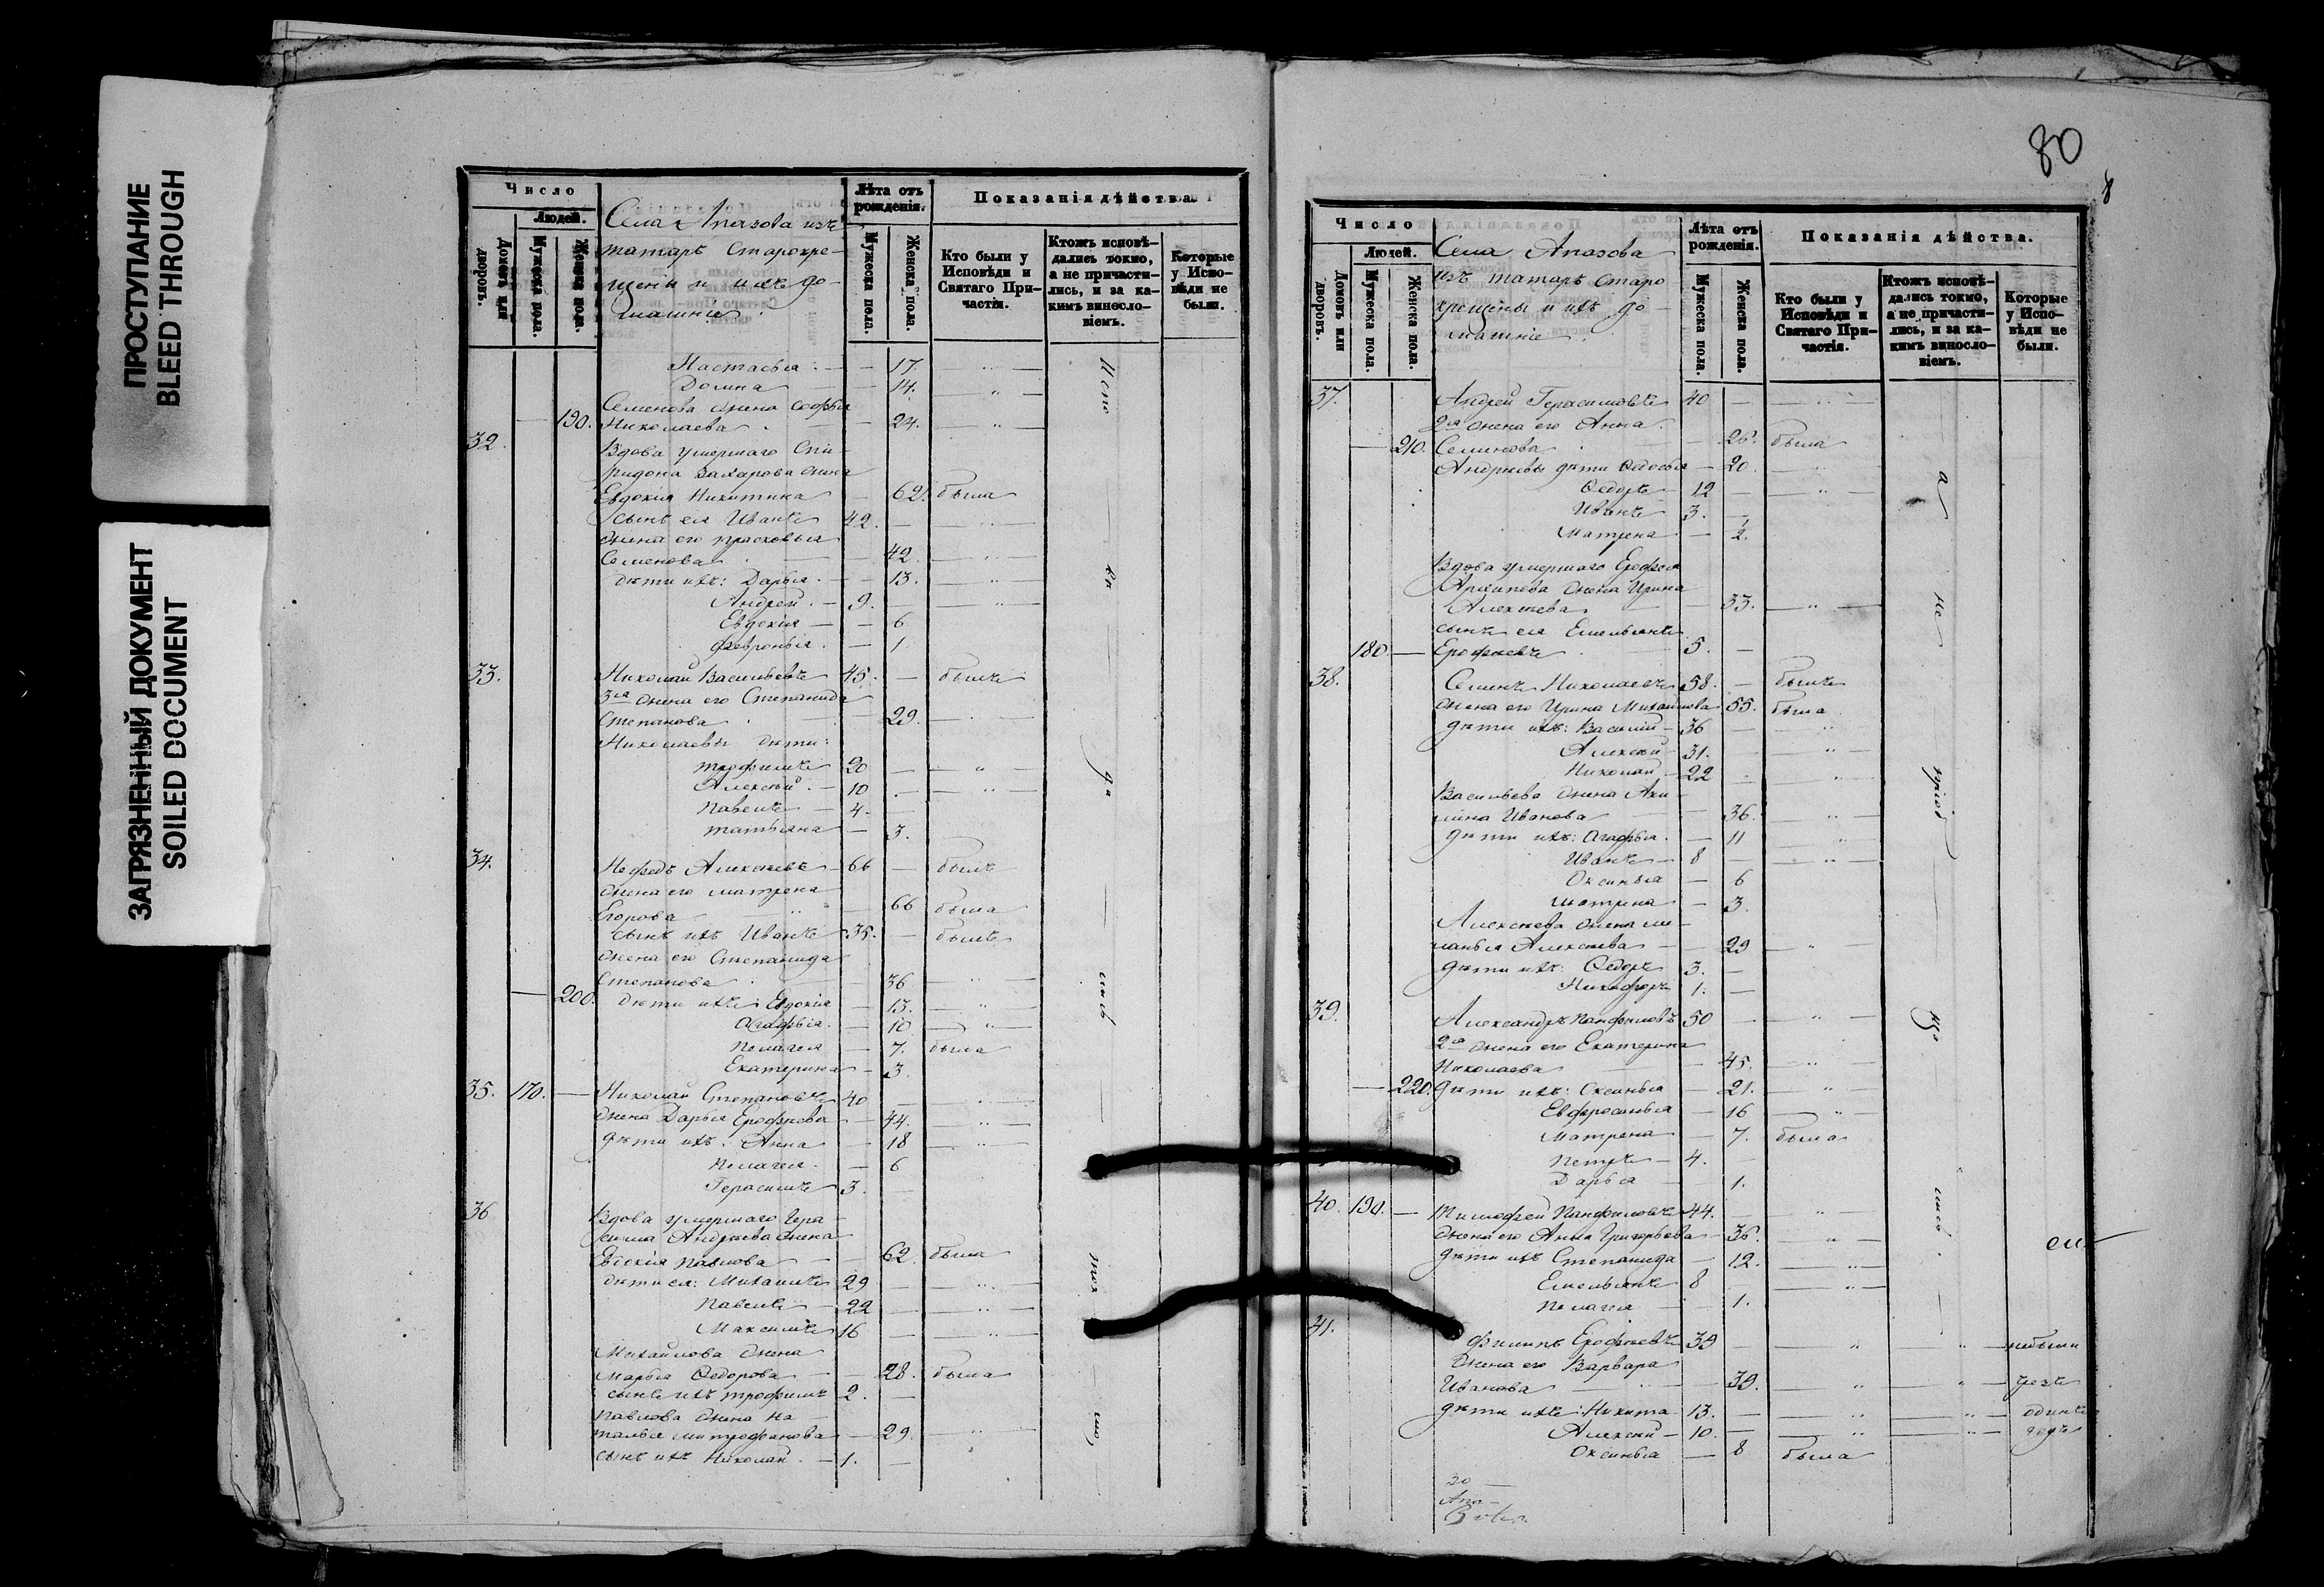 ПРОСТУПАНИЕ
BLEED THROUGH
ЗАГРЯЗНЕННЫЙ ДОКУМЕНТ
SOILED DOCUMENT
Число
Людей.
Домовъ или дворовъ.
Мужеска пола.
Женска пола.
Села Апазова изъ
татаръ старокре-
щени и ихъ до-
машніе.
Лѣта отъ рожденія.
Мужеска пола.
Женска пола.
Показанія дѣйства
Кто были у Исповѣди и Святаго Причастія.
Ктожъ исповѣдались токмо, а не причастились, и за какимъ винословіемъ.
Которые у Исповѣди не были.
Настасья — 17. — " —
Домна — 14. — " —
Семенова жена Софья
— 190. Николаева — 24. — " —
32. Вдова умершаго Спи-
ридона Захарова жена
Евдокія Никитина — 62. была
сынъ ея Иванъ 42. — " —
жена его Прасковья
Семенова — 42. — " —
дѣти ихъ: Дарья — 13. — " —
Андрей — 9. — " —
Евдокія — 6
Февронья — 1
33. Николай Васильевъ 45. — былъ
3я жена его Степанида
Степанова — 29. — " —
Николаевы дѣти:
Трофимъ 20 — " —
Алексѣй — 10 — " —
Павелъ — 4. —
Татьяна — 3.
34. Нефедъ Алексѣевъ — 66 — былъ
жена его Матрена
Егорова — 66 была
сынъ ихъ Иванъ 35. — былъ
жена его Степанида
Степанова — 36 — " —
— 200. дѣти ихъ Евдокія — 13. — " —
Агафья — 10 — " —
Пелагея — 7. была
Екатерина — 3.
35. 170. — Николай Степановъ 40 — " —
жена Дарья Ерофѣева — 44. — " —
дѣти ихъ: Анна — 18 — " —
Пелагея — 6
Герасимъ 3. —
36 Вдова умершаго Гера-
сима Андрѣева жена
Евдокія Павлова — 62. была
дѣти ея: Михаилъ 29 — " —
Павелъ — 22 — " —
Максимъ 16 — " —
Михайлова жена
Марья Ѳедорова — 28. была
сынъ ихъ Трофимъ 2. —
Павлова жена На-
талья Митрофанова — 29. — " —
сынъ ихъ Николай — 1. —
80
Число
Людей.
Домовъ или дворовъ.
Мужеска пола.
Женска пола.
Села Апазова
изъ татаръ старо
крещены и ихъ до-
машніе.
Лѣта отъ рожденія.
Мужеска пола.
Женска пола.
Показанія дѣйства.
Кто были у Исповѣди и Святаго Причастія.
Ктожъ исповѣдались токмо, а не причастились, и за какимъ винословіемъ.
Которые у Исповѣди не были.
37. Андрей Герасимовъ 40 — " —
2я жена его Анна
— 210. Семенова — 26. была
Андрѣевы дѣти Ѳедосья — 20. — " —
Ѳедоръ — 12 — " —
Иванъ — 3. —
Матрена — 1/2.
Вдова умершаго Ерофея
Архипова жена Ирина
Алексѣева — 33. — " —
сынъ ея Емельянъ
180 — Ерофѣевъ — 5. —
38. Семенъ Николаевъ 58. — былъ
жена его Ирина Михайлова 55. была
дѣти ихъ: Василій — 36 — " —
Алексѣй — 31. — " —
Николай — 22 — " —
Васильева жена Аку-
лина Иванова — 36. — " —
дѣти ихъ: Агафья — 11 — " —
Иванъ — 8 — " —
Оксинья — 6
Матрена — 3.
Алексѣева жена Ма-
ланья Алексѣева — 29 — " —
дѣти ихъ: Ѳедоръ 3. —
Никифоръ 1. —
39. Александръ Панфиловъ 50 — " —
2я жена его Екатерина
Николаева — 45. — " —
— 220. дѣти ихъ: Оксинья — 21. — " —
Евфросинья — 16 — " —
Матрена — 7. была
Петръ — 4. —
Дарья — 1.
40. 190. — Тимофей Панфиловъ 44. — " —
жена его Анна Григорьева — 36. — " —
дѣти ихъ Степанида — 12. — " —
Емельянъ 8 — " —
Пелагея — 1.
41. Филипъ Ерофѣевъ 39 — " — " — небыли
жена его Варвара
Иванова — 39. — " — " — чрезъ
дѣти ихъ: Никита — 13. — " — " — одинъ
Алексѣй — 10. — " — " — годъ
Оксинья — 8 была